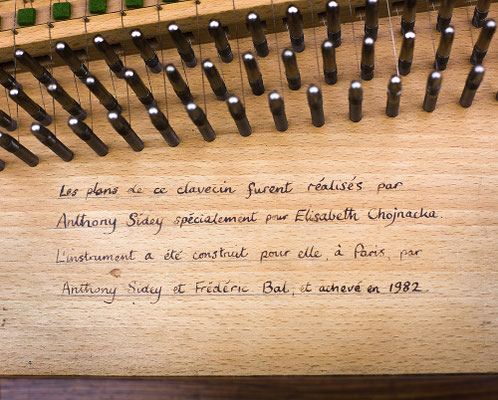 Les plans de ce clavecin furent réalisés par
Anthony Sidey spécialement pour Elisabeth Chojnacka.
L'instrument a été construit pour elle, à Paris, par
Anthony Sidey et Frédéric Bal, et achevé en 1982.